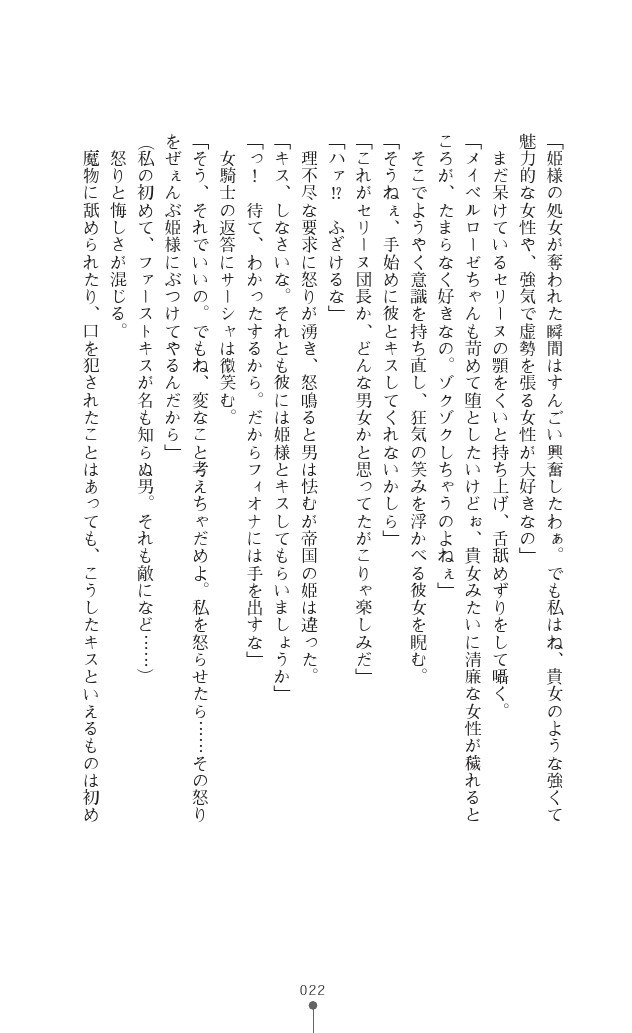 「姫様の処女が奪われた瞬間はすんごい興奮したわぁ。でも私はね、貴女のような強くて
魅力的な女性や、強気で虚勢を張る女性が大好きなの」
まだ呆けているセリーヌの顎をくいと持ち上げ、舌舐めずりをして囁く。
「メイベルローゼちゃんも苛めて堕としたいけどぉ、貴女みたいに清廉な女性が穢れると
ころが、たまらなく好きなの。ゾクゾクしちゃうのよねぇ」
そこでようやく意識を持ち直し、狂気の笑みを浮かべる彼女を睨む。
「そうねぇ、手始めに彼とキスしてくれないかしら」
「これがセリーヌ団長か、どんな男女かと思ってたがこりゃ楽しみだ」
「ハァ!? ふざけるな」
理不尽な要求に怒りが湧き、怒鳴ると男は怯むが帝国の姫は違った。
「キス、しなさいな。それとも彼には姫様とキスしてもらいましょうか」
「っ！ 待て、わかったするから。だからフィオナには手を出すな」
女騎士の返答にサーシャは微笑む。
「そう、それでいいの。でもね、変なこと考えちゃだめよ。私を怒らせたら……その怒り
をぜぇんぶ姫様にぶつけてやるんだから」
（私の初めて、ファーストキスが名も知らぬ男。それも敵になど……）
怒りと悔しさが混じる。
魔物に舐められたり、口を犯されたことはあっても、こうしたキスといえるものは初め
022